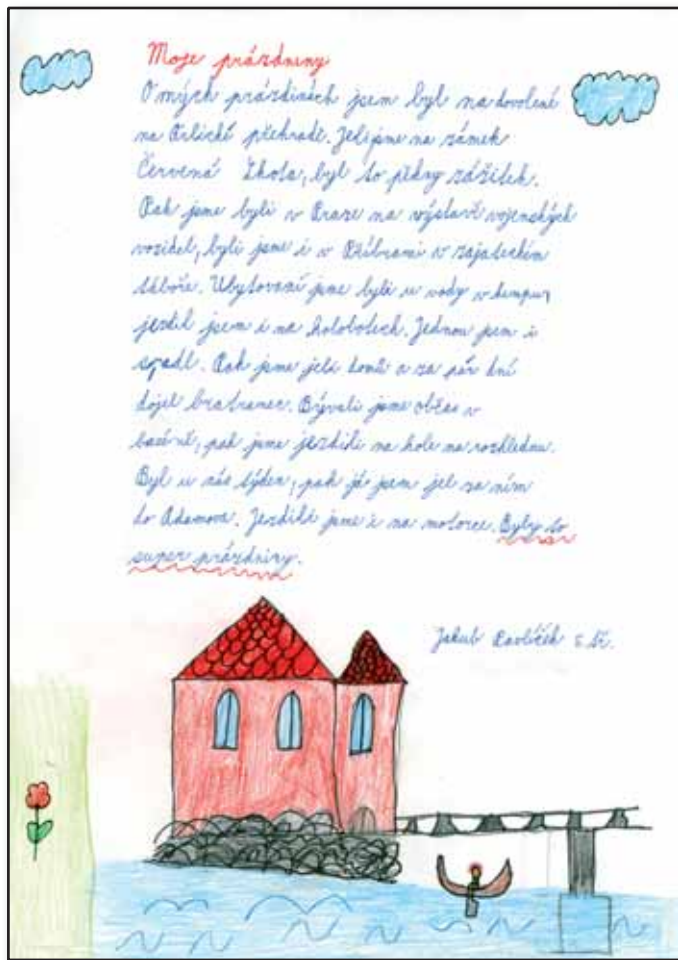 Moje prázdniny
O mých prázdinách jsem byl na dovolené
na Orlické přehradě. Jeli jsme na zámek
Červená Lhota, byl to pěkny zážitek.
Pak jsme byli v Praze na výstavě vojenských
vozidel, byli jsme i v Příbrami v zajateckém
táboře. Ubytovaní jsme byli u vody v kempu,
jezdil jsem i na koloboťech. Jednou jsem i
spadl. Pak jsme jeli domů a za pár dní
dojel bratranec. Bývali jsme občas v
bazéně, pak jsme jezdili na kole na rozhlednu.
Byl u nás týden, pak já jsem jel za ním
do Adamova. Jezdili jsme i na motorce. Byly to
super prázdniny.
Jakub Pavlíček 5. tř.